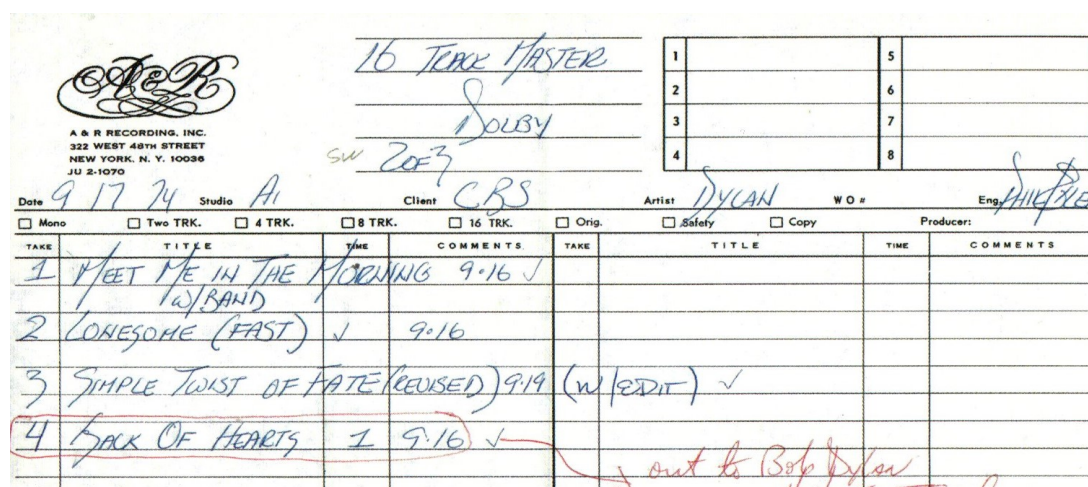 16 TRACK MASTER
DOLBY
SW 2 OF 3
A&R
A & R RECORDING, INC.
322 WEST 48TH STREET
NEW YORK, N. Y. 10036
JU 2-1070
1 5
2 6
3 7
4 8
Date 9 17 74 Studio A1 Client CBS Artist DYLAN W O # Eng. PHIL
Mono Two TRK. 4 TRK. 8 TRK. 16 TRK. Orig. Safety Copy Producer:
TAKE TITLE TIME COMMENTS TAKE TITLE TIME COMMENTS
1 MEET ME IN THE MORNING 9·16 ✓
W/BAND
2 LONESOME (FAST) ✓ 9·16
3 SIMPLE TWIST OF FATE (REVISED) 9·19 (W/EDIT) ✓
4 JACK OF HEARTS 1 9·16 ✓
out to Bob Dylan